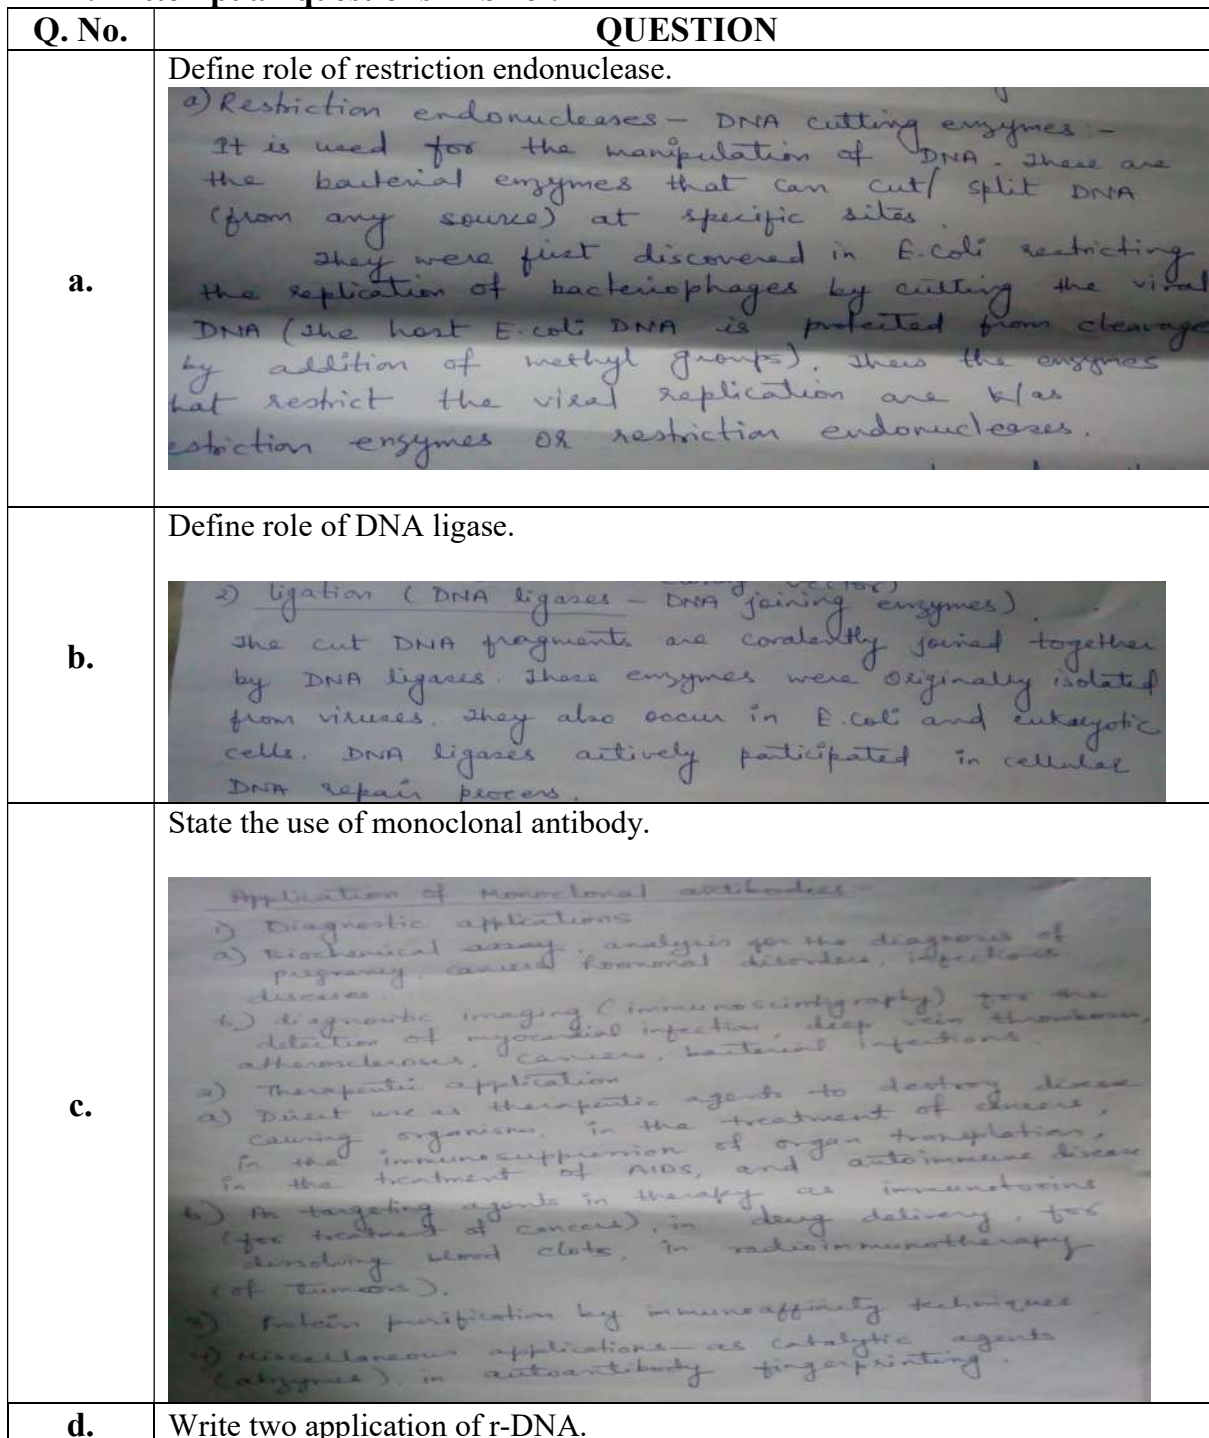 Q. No.
QUESTION
a.
Define role of restriction endonuclease.
a) Restriction endonucleases – DNA cutting enzymes :-
It is used for the manipulation of DNA. These are
the bacterial enzymes that can cut/ split DNA
(from any source) at specific sites.
They were first discovered in E.coli restricting
the replication of bacteriophages by cutting the viral
DNA (the host E.coli DNA is protected from cleavage
by addition of methyl groups). Thus the enzymes
hat restrict the viral replication are k/as
estriction enzymes or restriction endonucleases.
b.
Define role of DNA ligase.
vector)
2) ligation (DNA ligases – DNA joining enzymes)
The cut DNA fragments are covalently joined together
by DNA ligases. These enzymes were originally isolated
from viruses. They also occur in E.coli and eukaryotic
cells. DNA ligases actively participated in cellular
DNA repair process.
c.
State the use of monoclonal antibody.
Application of Monoclonal antibodies –
1) Diagnostic applications
a) Biochemical assay, analysis for the diagnosis of
pregnancy, cancers hormonal disorders, infectious
diseases.
b) diagnostic imaging (immunoscintigraphy) for the
detection of myocardial infection, deep vein thrombosis,
atherosclerosis, cancers, bacterial infections.
2) Therapeutic application
a) Direct use as therapeutic agents to destroy disease
causing organisms, in the treatment of cancers,
in the immunosuppression of organ transplation,
in the treatment of AIDS, and autoimmune disease
b) As targeting agents in therapy as immunotoxins
(for treatment of cancers), in drug delivery, for
dissolving blood clots, in radioimmunotherapy
(of tumors).
3) Protein purification by immunoaffinity techniques
4) Miscellaneous applications – as catalytic agents
(abzymes), in autoantibody fingerprinting.
d.
Write two application of r-DNA.